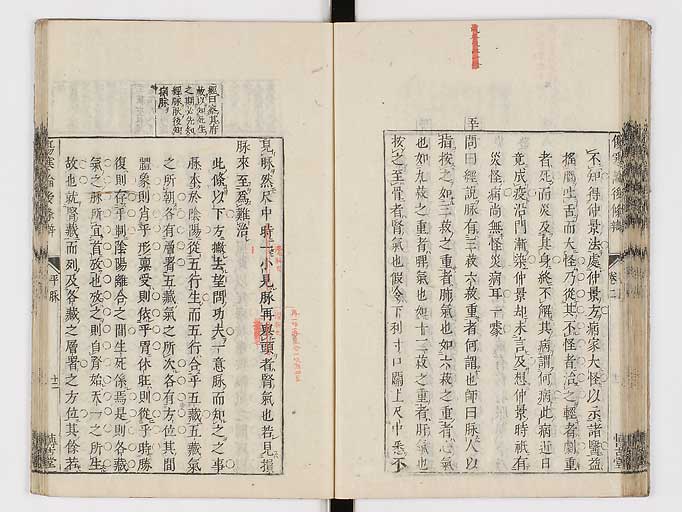 不知得仲景法處仲景方病家大怪以示諸醫益
搖唇生舌而大怪乃從其不怪者治之輕者劇重
者死而災及其身終不解其病謂何病此病近日
竟成疫沿門漸染仲景却未言及想仲景時祇有
災怪病尚無怪災病耳一噱
問曰經說脉有三菽六菽重者何謂也師曰脉人以
指按之如三菽之重者肺氣也如六菽之重者心氣
也如九菽之重者脾氣也如十二菽之重者肝氣也
按之至骨者腎氣也假令下列寸口關上尺中悉不
傷寒論後條辨
卷二
博古堂
經曰察其府
藏以知死生
之期必先知
經脉然後知
病脉
見脉然尺中時一小見脉再舉頭者腎氣也若見損
脉來至爲難治
此條以下方撇去望問功夫一意脉而知之之事
脉本於陰陽從五行生而五行合乎五藏五藏氣
之所朝各有層署五藏氣之所次各有方位其間
體象則肖乎形稟受則依乎胃休旺則從乎時勝
復則存乎制陰陽離合之間生死係焉是則各藏
氣之脉所宜首攷也攷之則自腎始天一之所生
故也就腎藏而列及各藏之層署之方位其餘若
傷寒論後條辨
平脉
博古堂